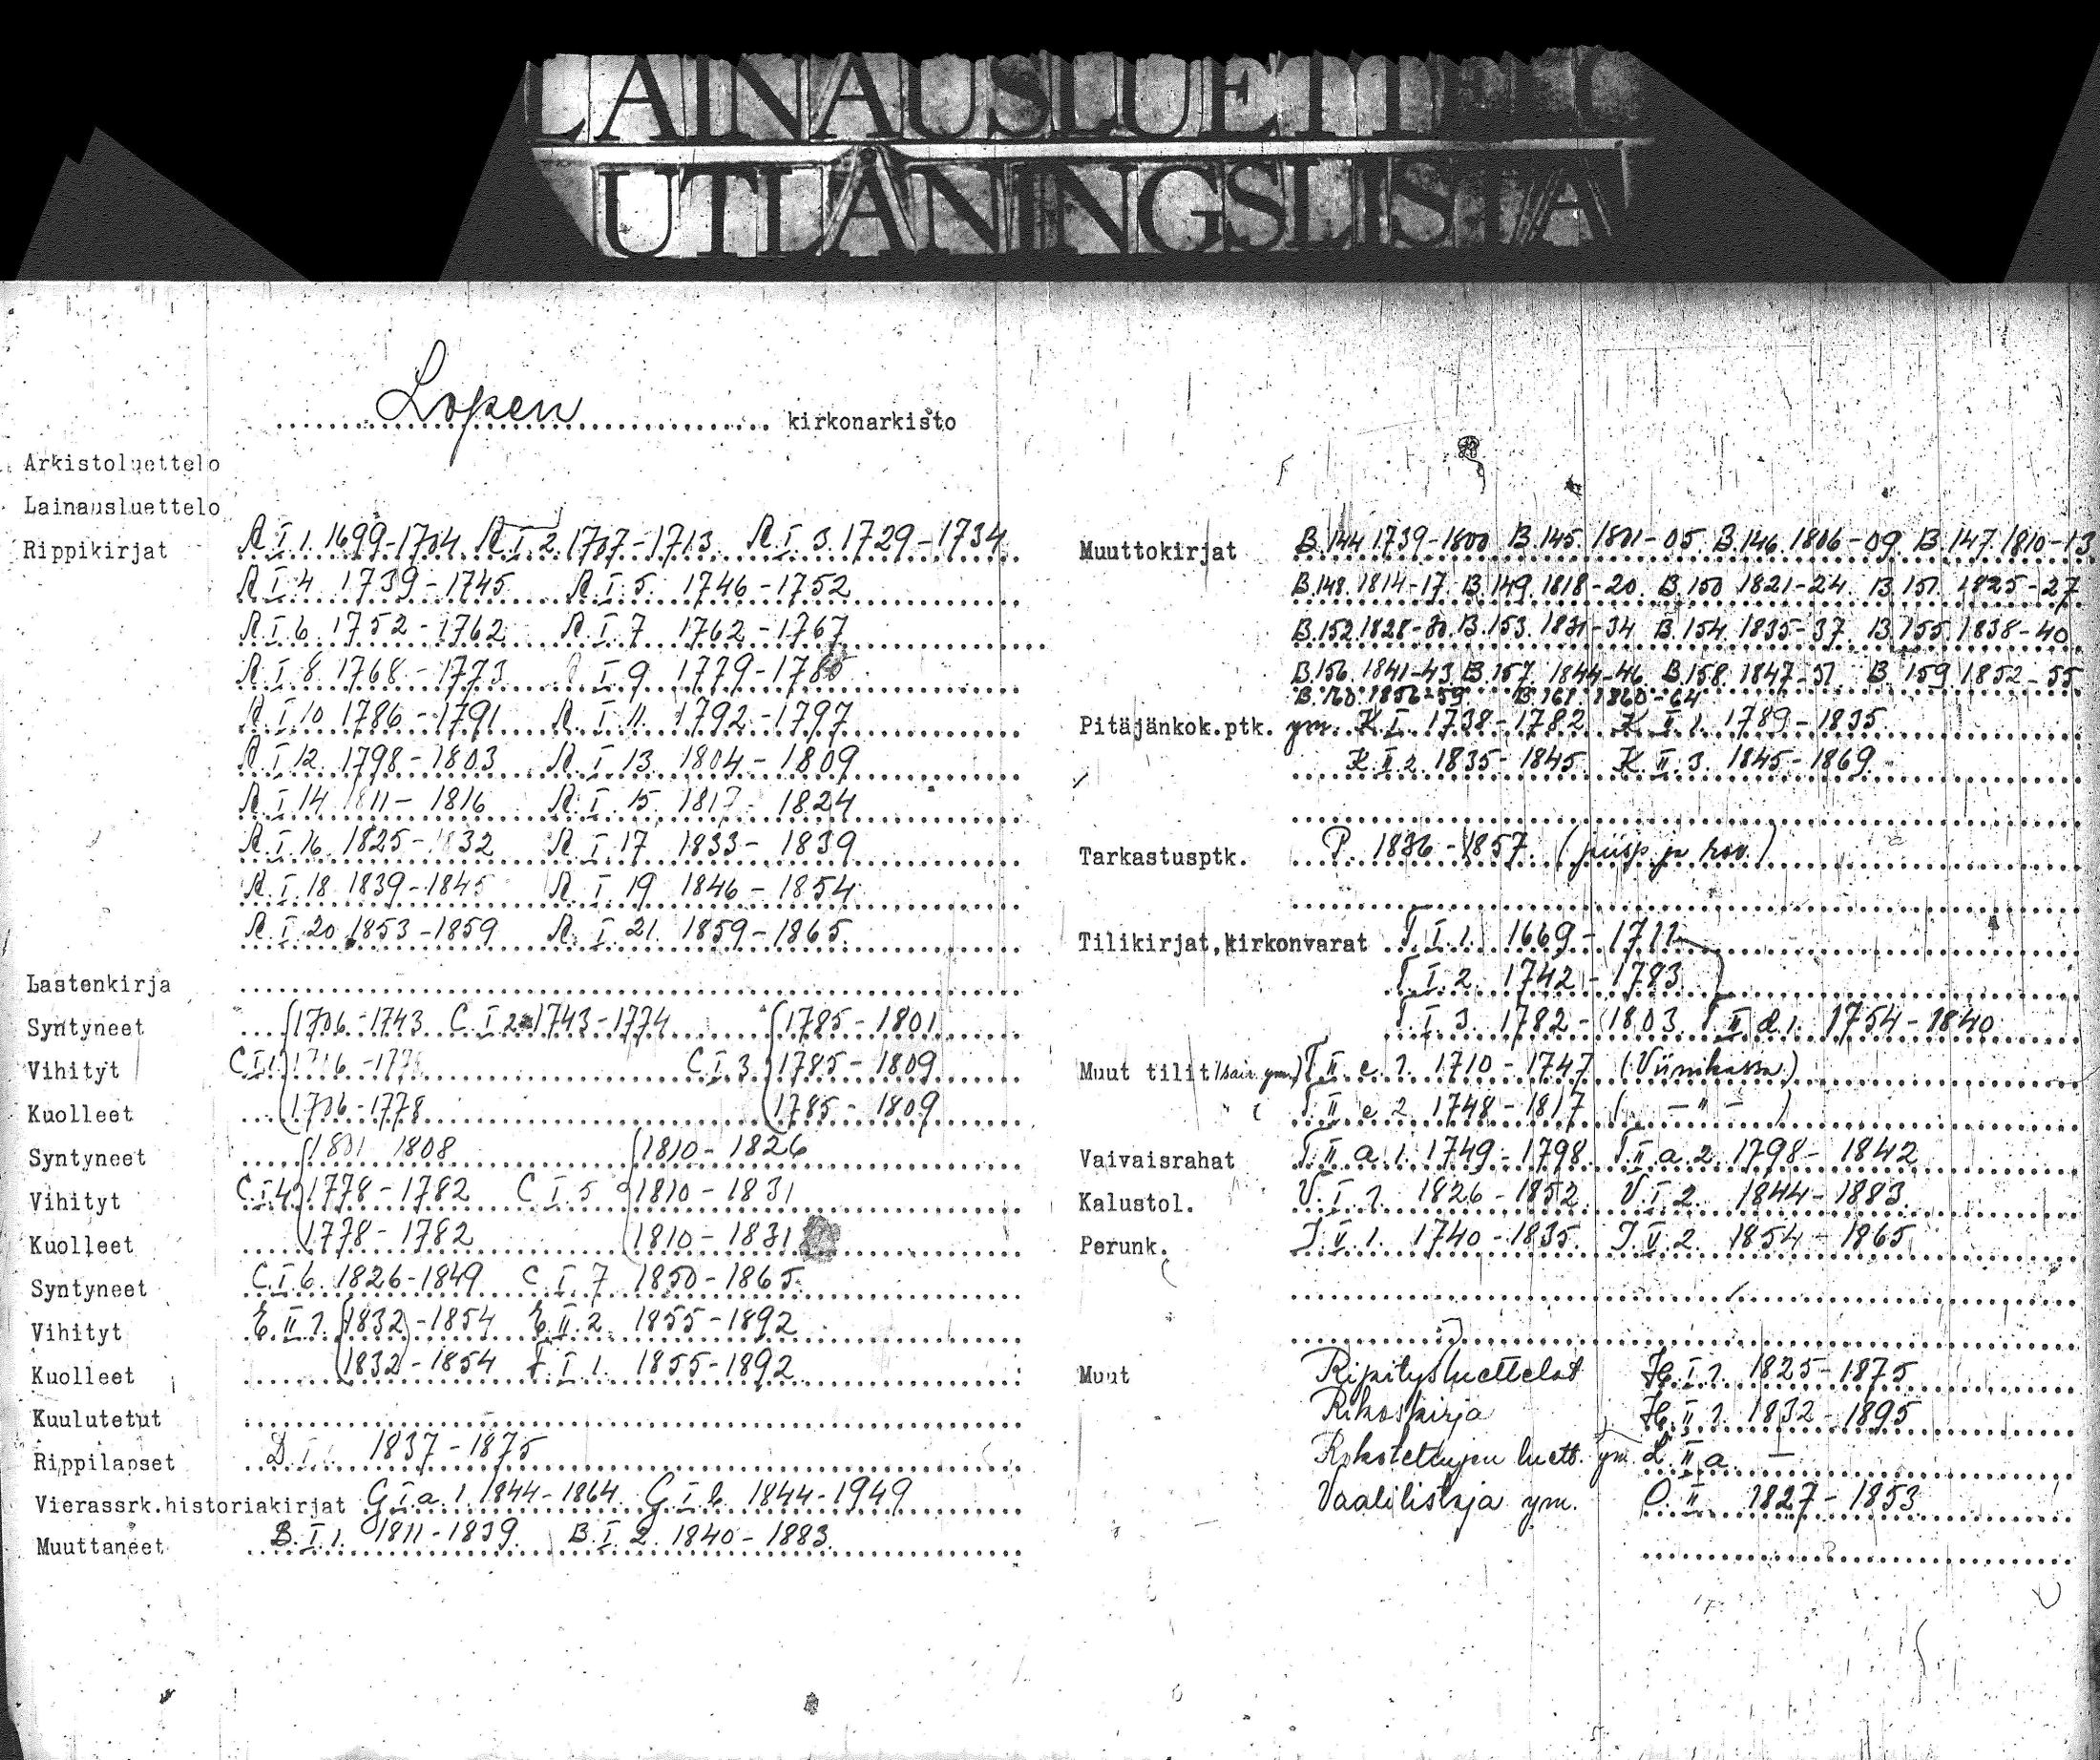 LAINAUSLUETTELO
UTLÅNINGSLISTA
Lopen kirkonarkisto
Arkistoluettelo
Lainausluettelo
Rippikirjat R.I.1. 1699-1704 R.I.2. 1707-1713 R.I.3. 1729-1734
R.I.4 1739-1745 R.I.5. 1746-1752
R.I.6. 1752-1762 R.I.7 1762-1767
R.I.8 1768-1773 R.I.9 1779-1785
R.I.10 1786-1791 R.I.11. 1792-1797
R.I.12. 1798-1803 R.I.13. 1804-1809
R.I.14 1811-1816 R.I.15. 1817-1824
R.I.16. 1825-1832 R.I.17 1833-1839
R.I.18 1839-1845 R.I.19 1846-1854
R.I.20 1853-1859 R.I.21. 1859-1865
Lastenkirja
Syntyneet 1706-1743 C.I.2. 1743-1774 1785-1801
Vihityt C.I.1. C.I.3. 1785-1809
Kuolleet 1706-1778 1785-1809
Syntyneet 1801 1808 1810-1826
Vihityt C.I.4. 1778-1782 C.I.5 1810-1831
Kuolleet 1778-1782 1810-1831
Syntyneet C.I.6. 1826-1849 C.I.7 1850-1865
Vihityt E.II.1. 1832-1854 E.II.2. 1855-1892
Kuolleet 1832-1854 F.I.1. 1855-1892
Kuulutetut
Rippilapset D.I. 1837-1875
Vierassrk.historiakirjat G.I.a.1. 1844-1864 G.I.b. 1844-1949
Muuttaneet B.I.1. 1811-1839 B.I.2. 1840-1883
Muuttokirjat B.144 1739-1800 B.145 1801-05 B.146 1806-09 B.147 1810-13
B.148. 1814-17. B.149. 1818-20. B.150 1821-24. B.151. 1825-27
B.152. 1828-30. B.153. 1831-34 B.154. 1835-37. B.155. 1838-40
B.156. 1841-43 B.157. 1844-46 B.158 1847-51 B 159 1852-55
B.160. 1856-59 B.161. 1860-64
Pitäjänkok.ptk. ym. K.I. 1738-1782 K.II.1. 1789-1835
K.II.2. 1835-1845 K.II.3. 1845-1869
Tarkastusptk. P. 1836-1857 (piisp. ja rov.)
Tilikirjat,kirkonvarat T.I.1. 1669-1711
T.I.2. 1742-1783
T.I.3. 1782-1803 T.II.d.1. 1754-1840
Muut tilit (sair. ym.) T.II.e.1. 1710-1747 (Viinikassa)
T.II.e.2. 1748-1817 ( -"- )
Vaivaisrahat T.II.a.1. 1749-1798 T.II.a.2. 1798-1842
Kalustol. V.I.1. 1826-1852 V.I.2. 1844-1883
Perunk. J.V.1. 1740-1835 J.V.2. 1854-1865
Muut Ripitysluettelot H.I.1. 1825-1875
Rikoskirja H.II.1. 1832-1895
Rokotettujen luett. ym. L.II.a. —
Vaalilistoja ym. O.II. 1827-1853